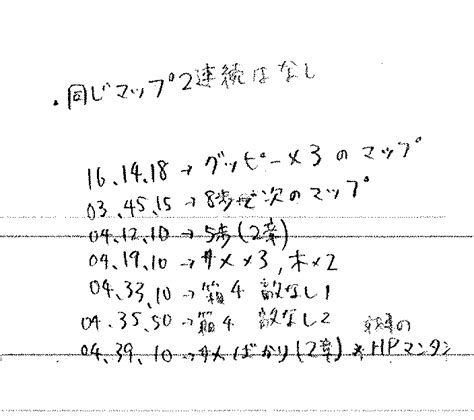 ・同じマップ2連続はなし
16.14.18→グッピー×3のマップ
03.45.15→8歩で次のマップ
04.12.10→5歩(2章)
04.19.10→サメ×3,木×2
04.33.10→箱4 敵なし1
04.35.50→箱4 敵なし2
04.39.10→サメばかり(2章)※HPマンタン